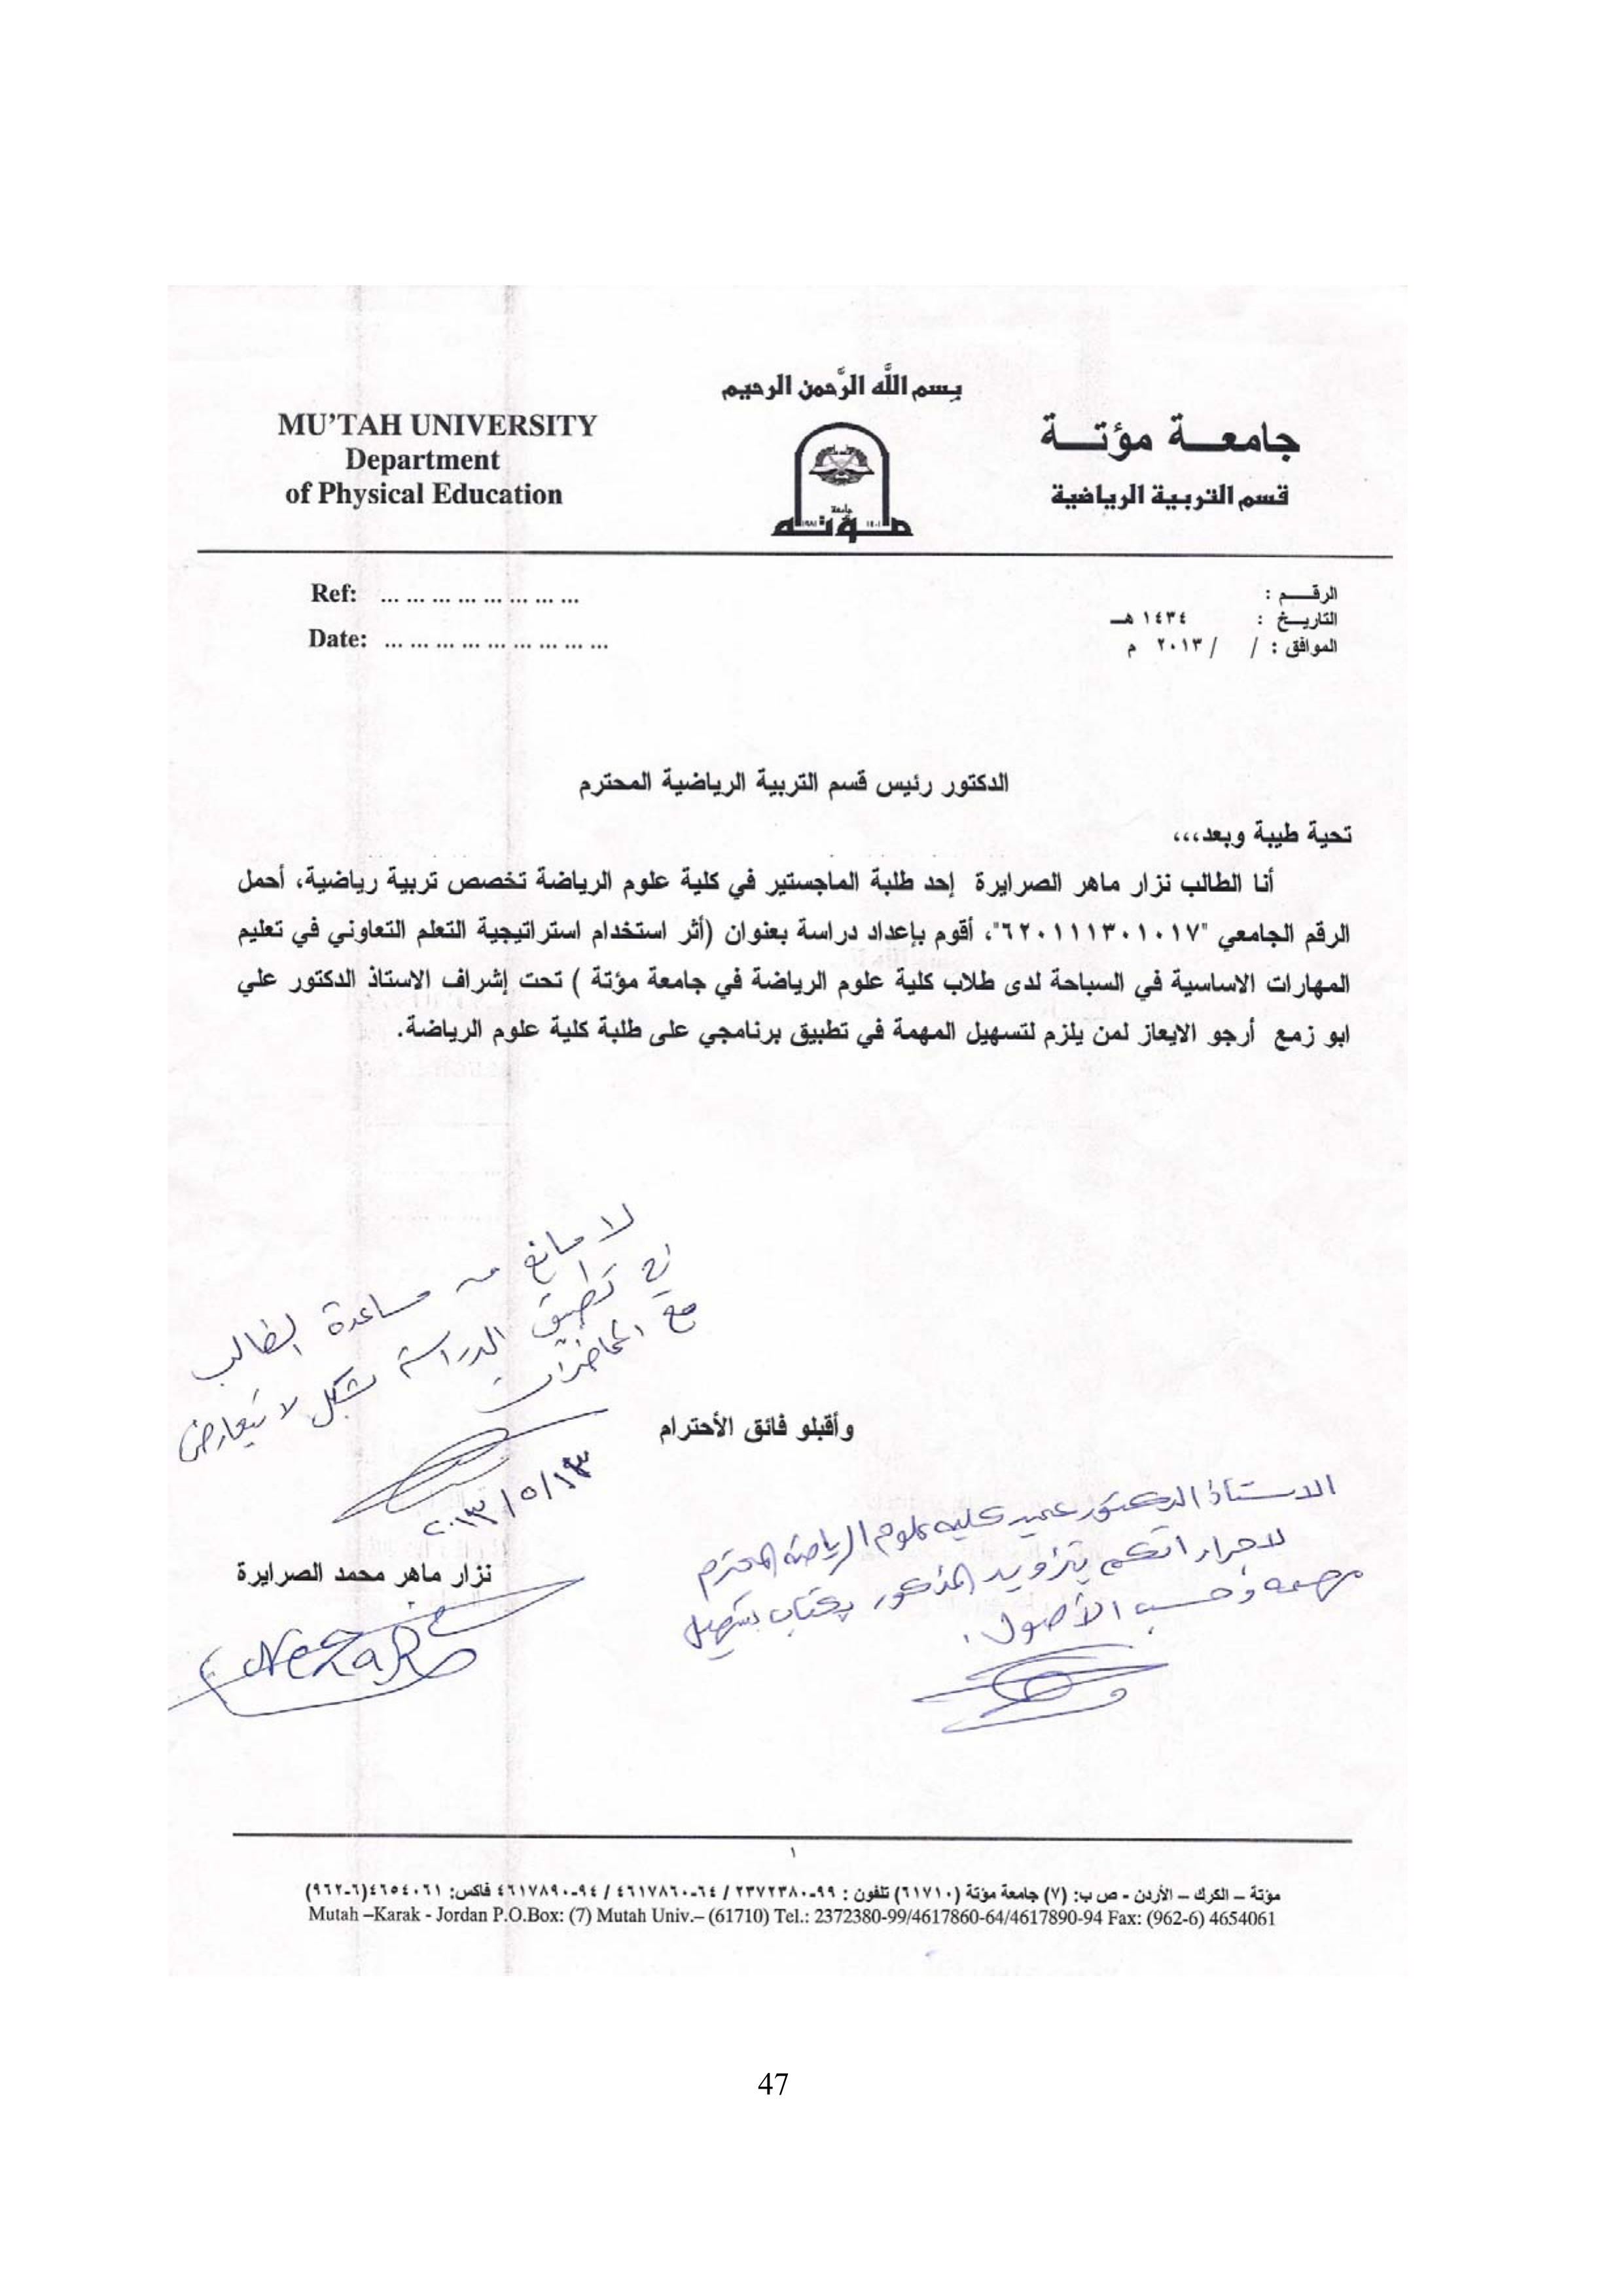 بسم الله الرَّحمن الرحيم
MU'TAH UNIVERSITY
Department
of Physical Education
جامعـــة مؤتـــة
قسم التربية الرياضية
جامعة
مؤته
Ref: ... ... ... ... ... ... ... ...
Date: ... ... ... ... ... ... ... ... ...
الرقـــم :
التاريـــخ : ١٤٣٤ هــ
الموافق : / / ٢٠١٣ م
الدكتور رئيس قسم التربية الرياضية المحترم
تحية طيبة وبعد،،،
أنا الطالب نزار ماهر الصرايرة إحد طلبة الماجستير في كلية علوم الرياضة تخصص تربية رياضية، أحمل
الرقم الجامعي "٦٢٠١١١٣٠١٠١٧"، أقوم بإعداد دراسة بعنوان (أثر استخدام استراتيجية التعلم التعاوني في تعليم
المهارات الاساسية في السباحة لدى طلاب كلية علوم الرياضة في جامعة مؤتة ) تحت إشراف الاستاذ الدكتور علي
ابو زمع أرجو الايعاز لمن يلزم لتسهيل المهمة في تطبيق برنامجي على طلبة كلية علوم الرياضة.
لا مانع من مساعدة الطالب
في تطبيق الدراسة بشكل لا يتعارض
مع المحاضرات
٢٠١٣/٥/١٣
وأقبلو فائق الأحترام
الاستاذ الدكتور عميد كلية علوم الرياضة المحترم
لاجراءاتكم بتزويد المذكور بكتاب تسهيل
مهمة وحسب الأصول.
نزار ماهر محمد الصرايرة
NeZaR
١
مؤتة – الكرك – الأردن - ص ب: (٧) جامعة مؤتة (٦١٧١٠) تلفون : ٩٩-٢٣٧٢٣٨٠ / ٦٤-٤٦١٧٨٦٠ / ٩٤-٤٦١٧٨٩٠ فاكس: ٤٦٥٤٠٦١(٦-٩٦٢)
Mutah –Karak - Jordan P.O.Box: (7) Mutah Univ.– (61710) Tel.: 2372380-99/4617860-64/4617890-94 Fax: (962-6) 4654061
47